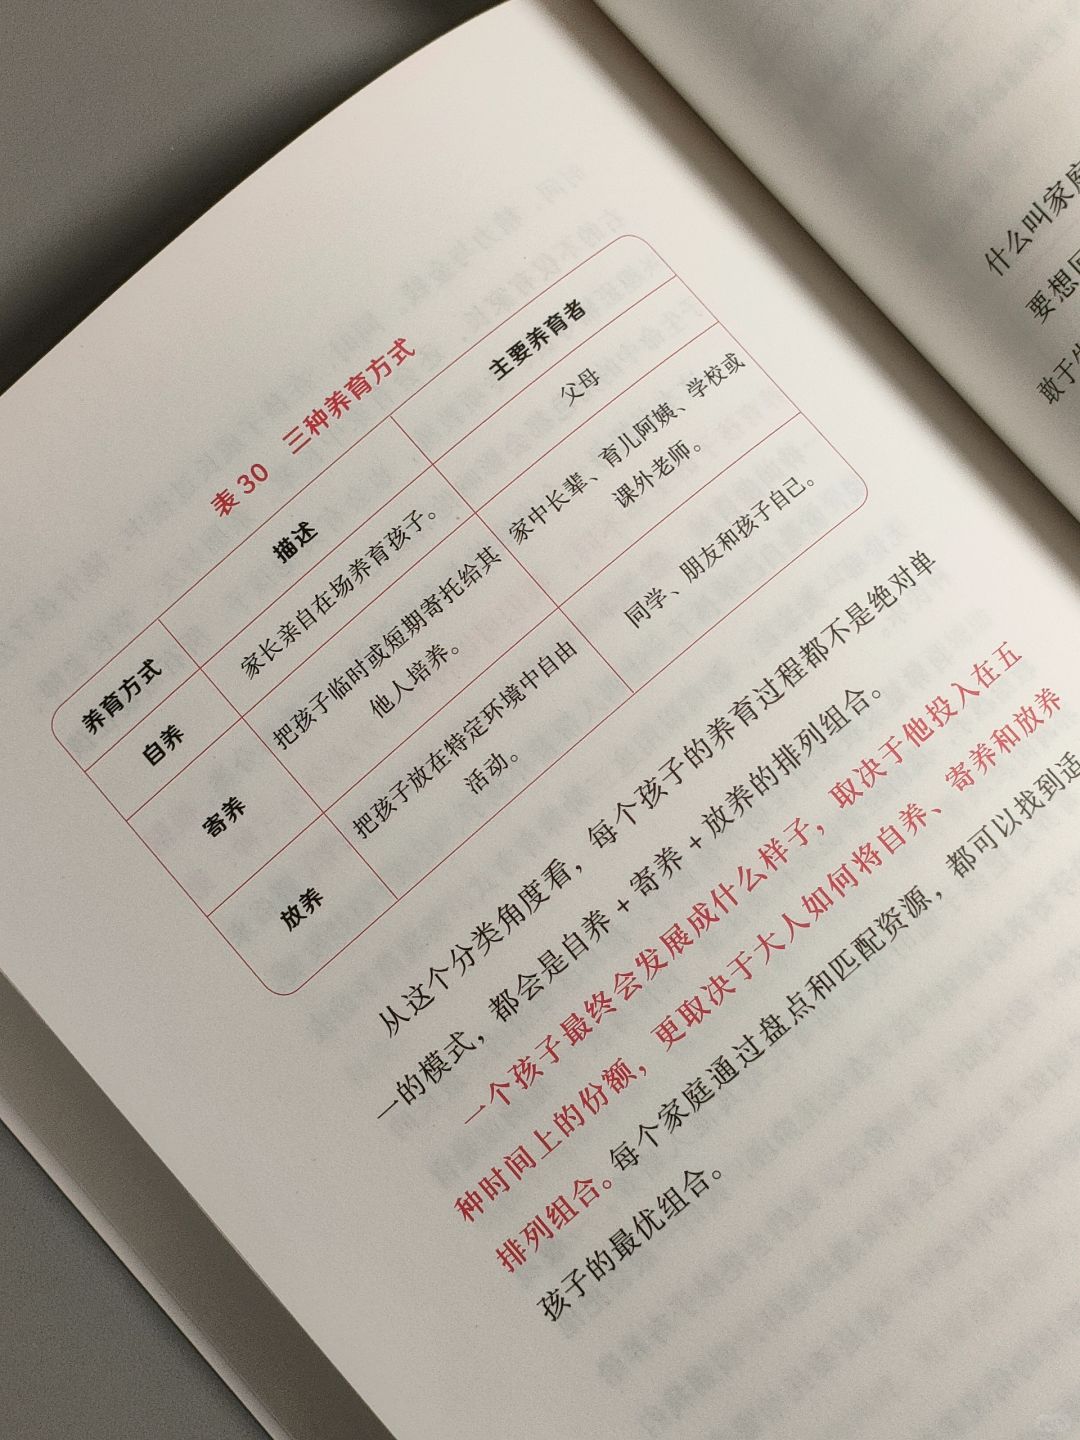 表 30 三种养育方式
养育方式 描述 主要养育者
自养 家长亲自在场养育孩子。 父母
寄养 把孩子临时或短期寄托给其 家中长辈、育儿阿姨、学校或
他人培养。 课外老师。
放养 把孩子放在特定环境中自由 同学、朋友和孩子自己。
活动。
从这个分类角度看，每个孩子的养育过程都不是绝对单
一的模式，都会是自养 + 寄养 + 放养的排列组合。
一个孩子最终会发展成什么样子，取决于他投入在五
种时间上的份额，更取决于大人如何将自养、寄养和放养
排列组合。每个家庭通过盘点和匹配资源，都可以找到适
孩子的最优组合。
什么叫家庭
要想
敢于